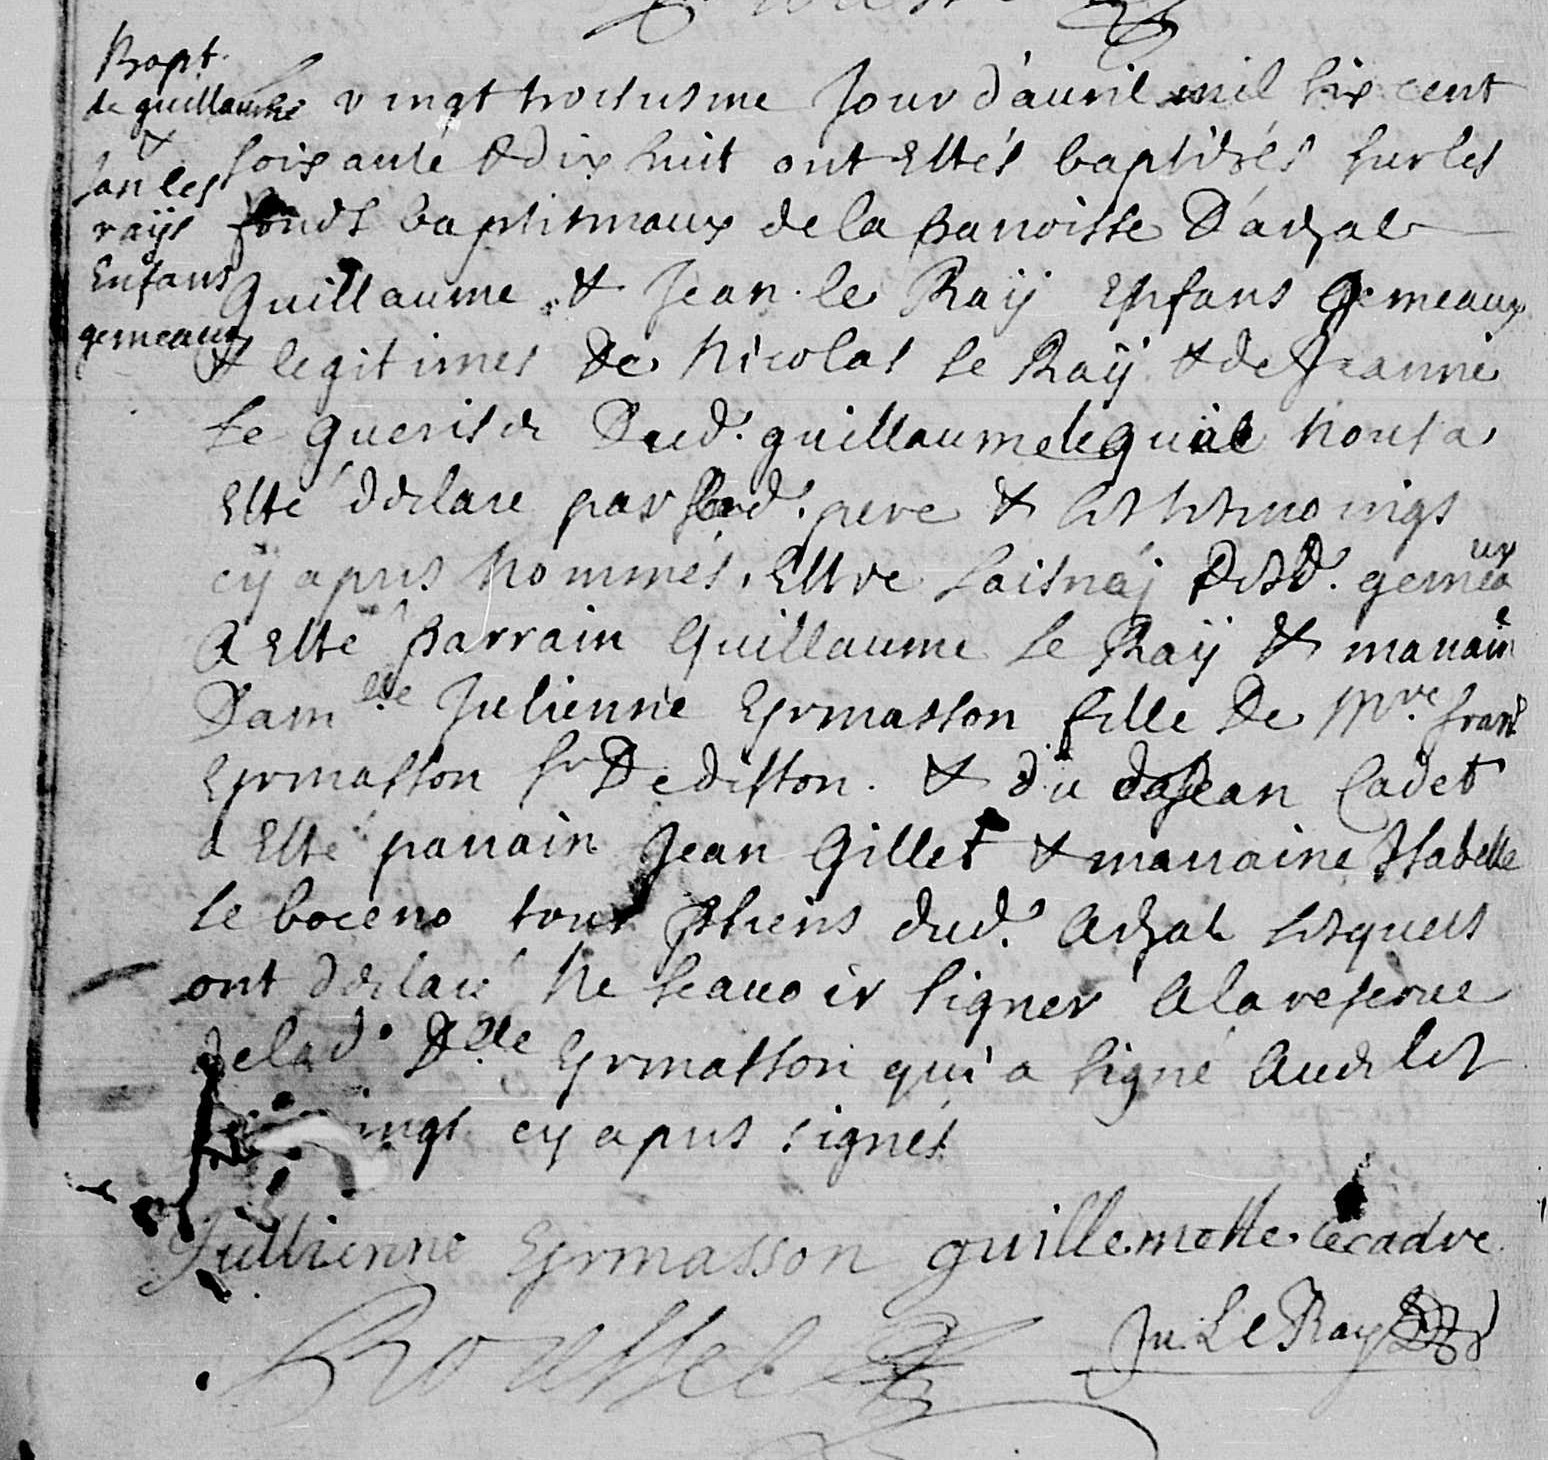 Bapt.
de guillaume
&
Jan les
raÿs
Enfans
gemeaux
Le vingt troisiesme Jour d'auril mil six cent
soixante & dix huit ont Estés baptisés sur les
fonds baptismaux de la parroisse D'arzal
Guillaume & Jean le Raÿ Enfans Gemeaux
& legitimes De Nicolas le Raÿ & de Jeanne
Le Dud. guillaume lequel nous a
Esté declaré par led. pere & les tesmoings
cy apres nommés, Estre laisnéj Desd. gemeaux
A Esté parrain Guillaume le Raÿ & maraine
Dam.lle Julienne Eyrmasson fille De Mre fran
Eyrmasson sr De diston. & du d. Jean Cadet
a Esté parrain Jean Gillet & marraine Isabelle
le boceno tous dud. Arzal lesquels
ont declaré Ne scauoir signer A la reserue
de lad. D.lle Eyrmasson qui a signé Auec les
cy apres signés
Jullienne Eyrmasson guillemette. lecadre
Roussel Ju. Le Ray